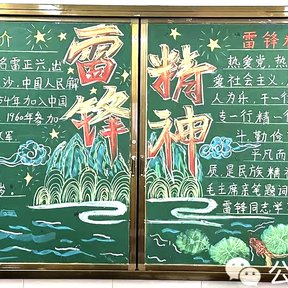 介
名雷正兴,出
沙,中国人民解
54年加入中国
1960年参加
军
岁
雷锋
精神
雷锋
热爱党,热
爱社会主义
人为乐,干一行
专一行,精一行
斗,勤俭
平凡而
质,是民族精神
毛主席亲笔题词
雷锋同志学
公